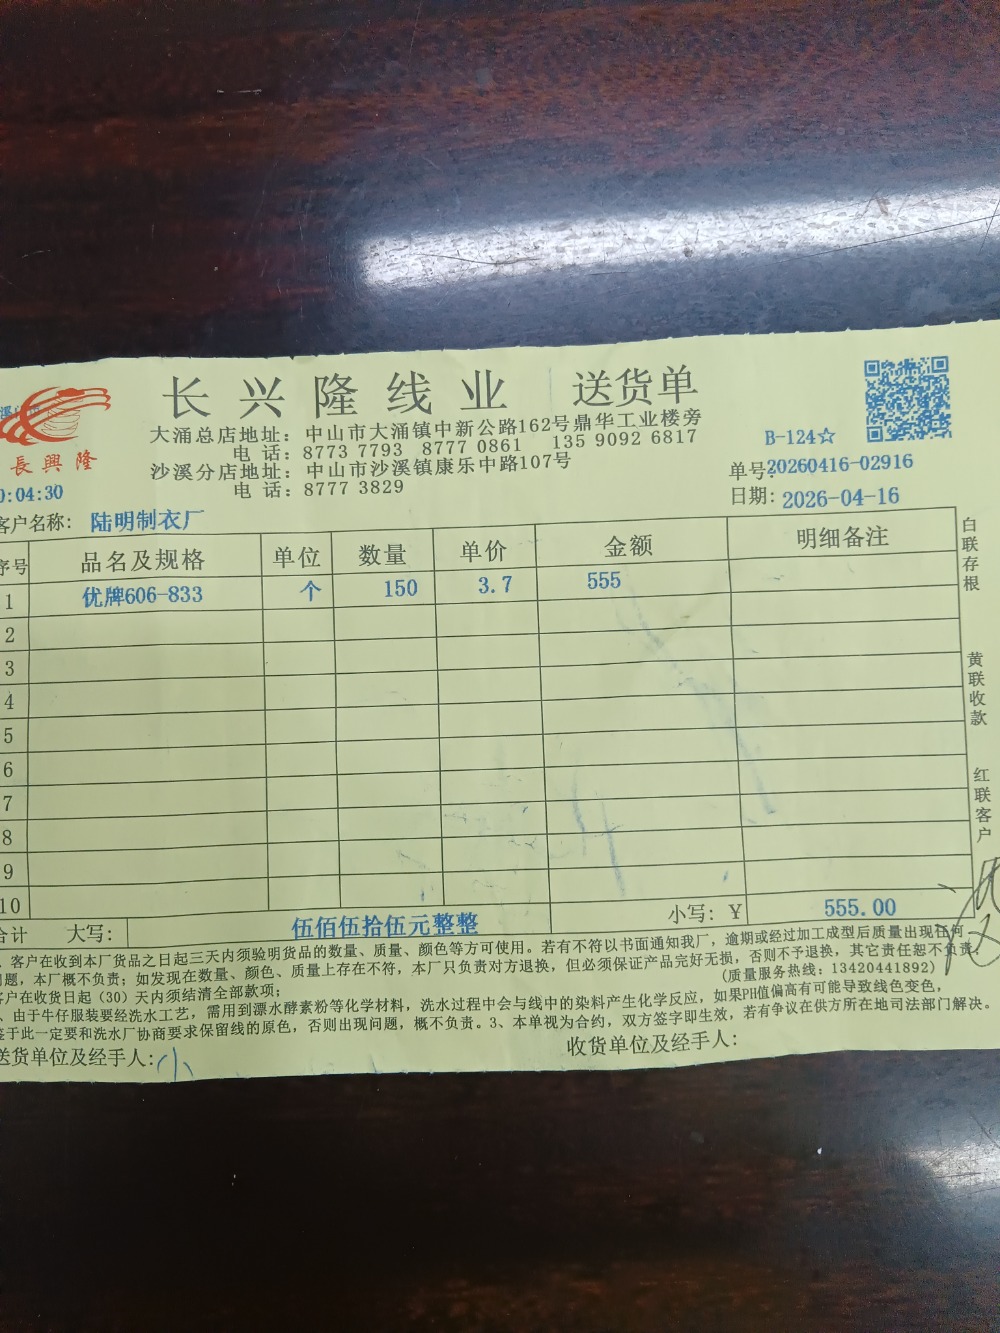 长兴隆线业 送货单
大涌总店地址：中山市大涌镇中新公路162号鼎华工业楼旁
电 话：8773 7793 8777 0861 135 9092 6817
沙溪分店地址：中山市沙溪镇康乐中路107号
电 话：8777 3829
長興隆
B-124☆
单号:20260416-02916
:04:30
日期：2026-04-16
客户名称：陆明制衣厂
序号 品名及规格 单位 数量 单价 金额 明细备注
1 优牌606-833 个 150 3.7 555
2
3
4
5
6
7
8
9
10
合计 大写：伍佰伍拾伍元整整 小写：￥ 555.00
白联存根
黄联收款
红联客户
、客户在收到本厂货品之日起三天内须验明货品的数量、质量、颜色等方可使用。若有不符以书面通知我厂，逾期或经过加工成型后质量出现任何
问题，本厂概不负责；如发现在数量、颜色、质量上存在不符，本厂只负责对方退换，但必须保证产品完好无损，否则不予退换，其它责任恕不负责，
客户在收货日起（30）天内须结清全部款项； (质量服务热线：13420441892)
、由于牛仔服装要经洗水工艺，需用到漂水酵素粉等化学材料，洗水过程中会与线中的染料产生化学反应，如果PH值偏高有可能导致线色变色，
鉴于此一定要和洗水厂协商要求保留线的原色，否则出现问题，概不负责。3、本单视为合约，双方签字即生效，若有争议在供方所在地司法部门解决。
送货单位及经手人：小 收货单位及经手人：